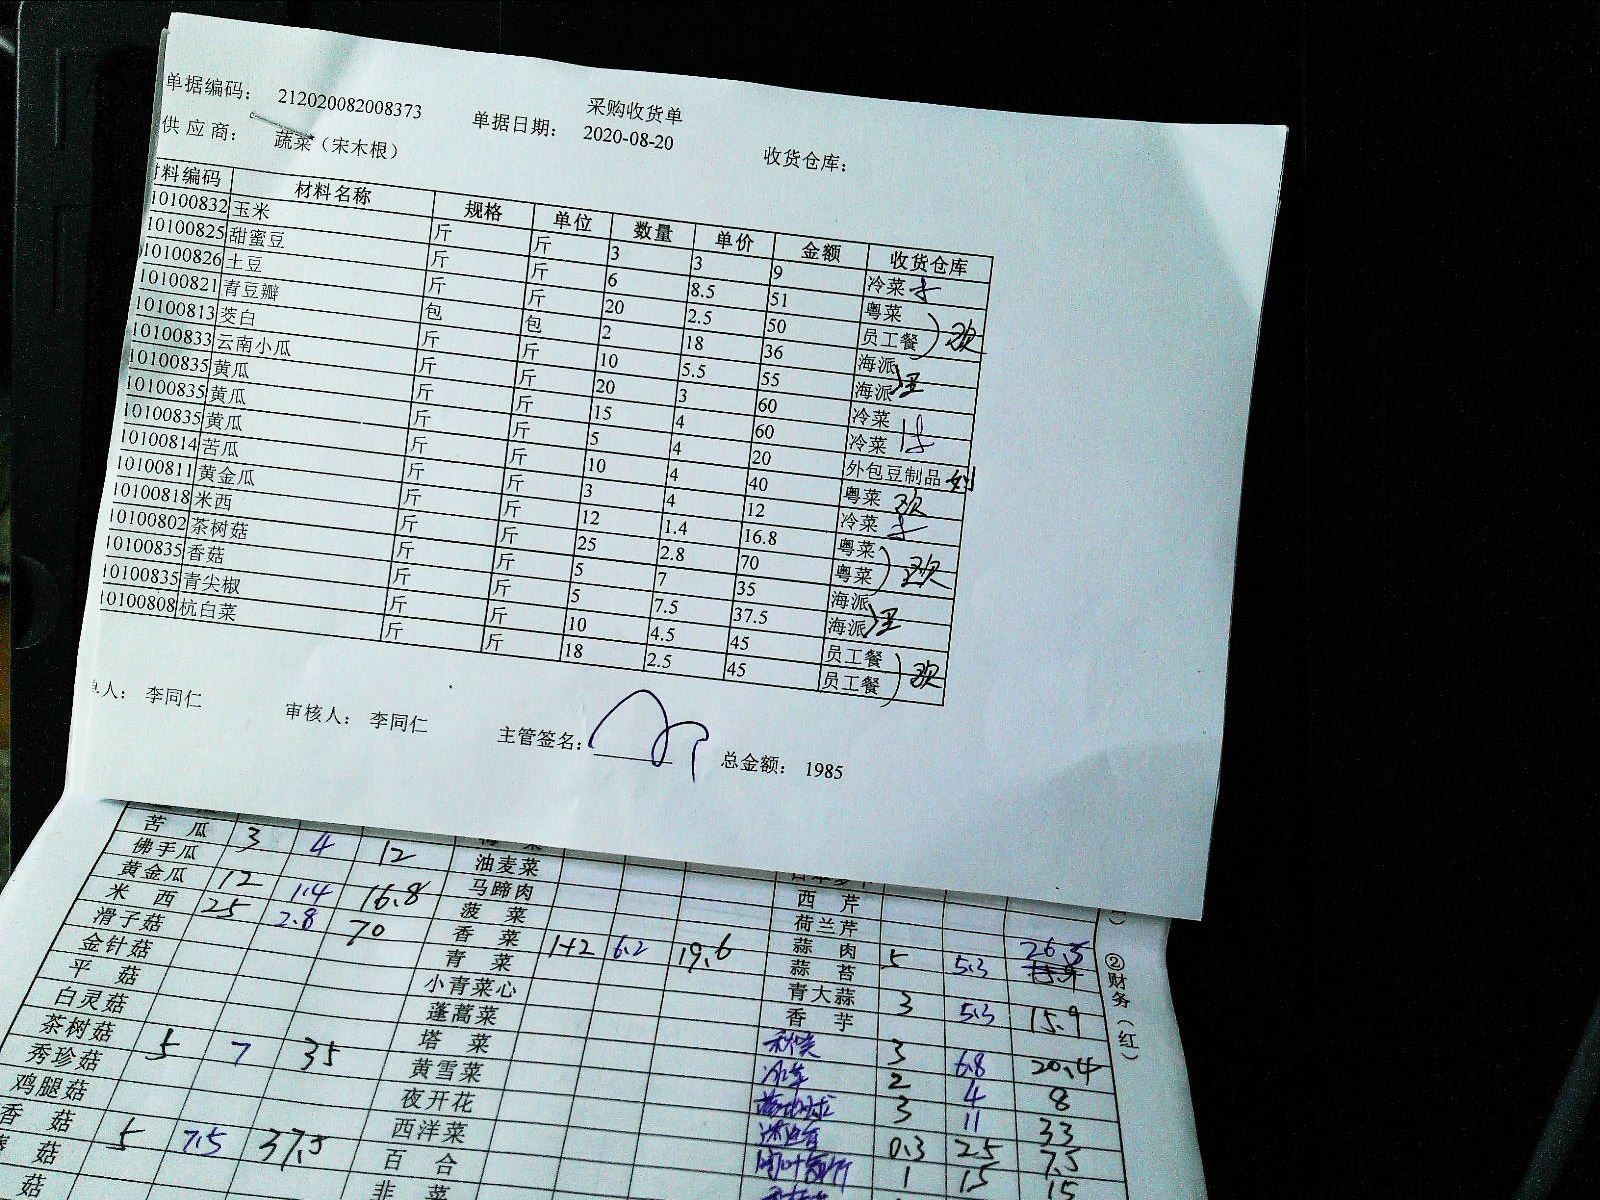 采购收货单
单据编码： 212020082008373 单据日期： 2020-08-20 收货仓库：
供应商： 蔬菜（宋木根）
材料编码 材料名称 规格 单位 数量 单价 金额 收货仓库
10100832 玉米 斤 斤 3 3 9 冷菜
10100825 甜蜜豆 斤 斤 6 8.5 51 粤菜
10100826 土豆 斤 斤 20 2.5 50 员工餐
10100821 青豆瓣 包 包 2 18 36 海派
10100813 茭白 斤 斤 10 5.5 55 海派
10100833 云南小瓜 斤 斤 20 3 60 冷菜
10100835 黄瓜 斤 斤 15 4 60 冷菜
10100835 黄瓜 斤 斤 5 4 20 外包豆制品
10100835 黄瓜 斤 斤 10 4 40 粤菜
10100814 苦瓜 斤 斤 3 4 12 冷菜
10100811 黄金瓜 斤 斤 12 1.4 16.8 粤菜
10100818 米西 斤 斤 25 2.8 70 粤菜
10100802 茶树菇 斤 斤 5 7 35 海派
10100835 香菇 斤 斤 5 7.5 37.5 海派
10100835 青尖椒 斤 斤 10 4.5 45 员工餐
10100808 杭白菜 斤 斤 18 2.5 45 员工餐
人： 李同仁 审核人： 李同仁 主管签名： 总金额： 1985
苦瓜 3 4 12
佛手瓜 油麦菜
黄金瓜 12 1.4 16.8 马蹄肉 西芹
米西 25 2.8 70 菠菜 荷兰芹
滑子菇 香菜 1+2 6.2 19.6 蒜肉 5 5.3 26.5
金针菇 青菜 蒜苔
平菇 小青菜心 青大蒜 3 5.3 15.9
白灵菇 蓬蒿菜 香芋
茶树菇 5 7 35 塔菜 秋葵 3 6.8 20.4
秀珍菇 黄雪菜 2 4 8
鸡腿菇 夜开花 3 11 33
香菇 5 7.5 37.5 西洋菜 0.3 25 7.5
菇 百合 1 15 15
菇 韭菜
②财务（红）